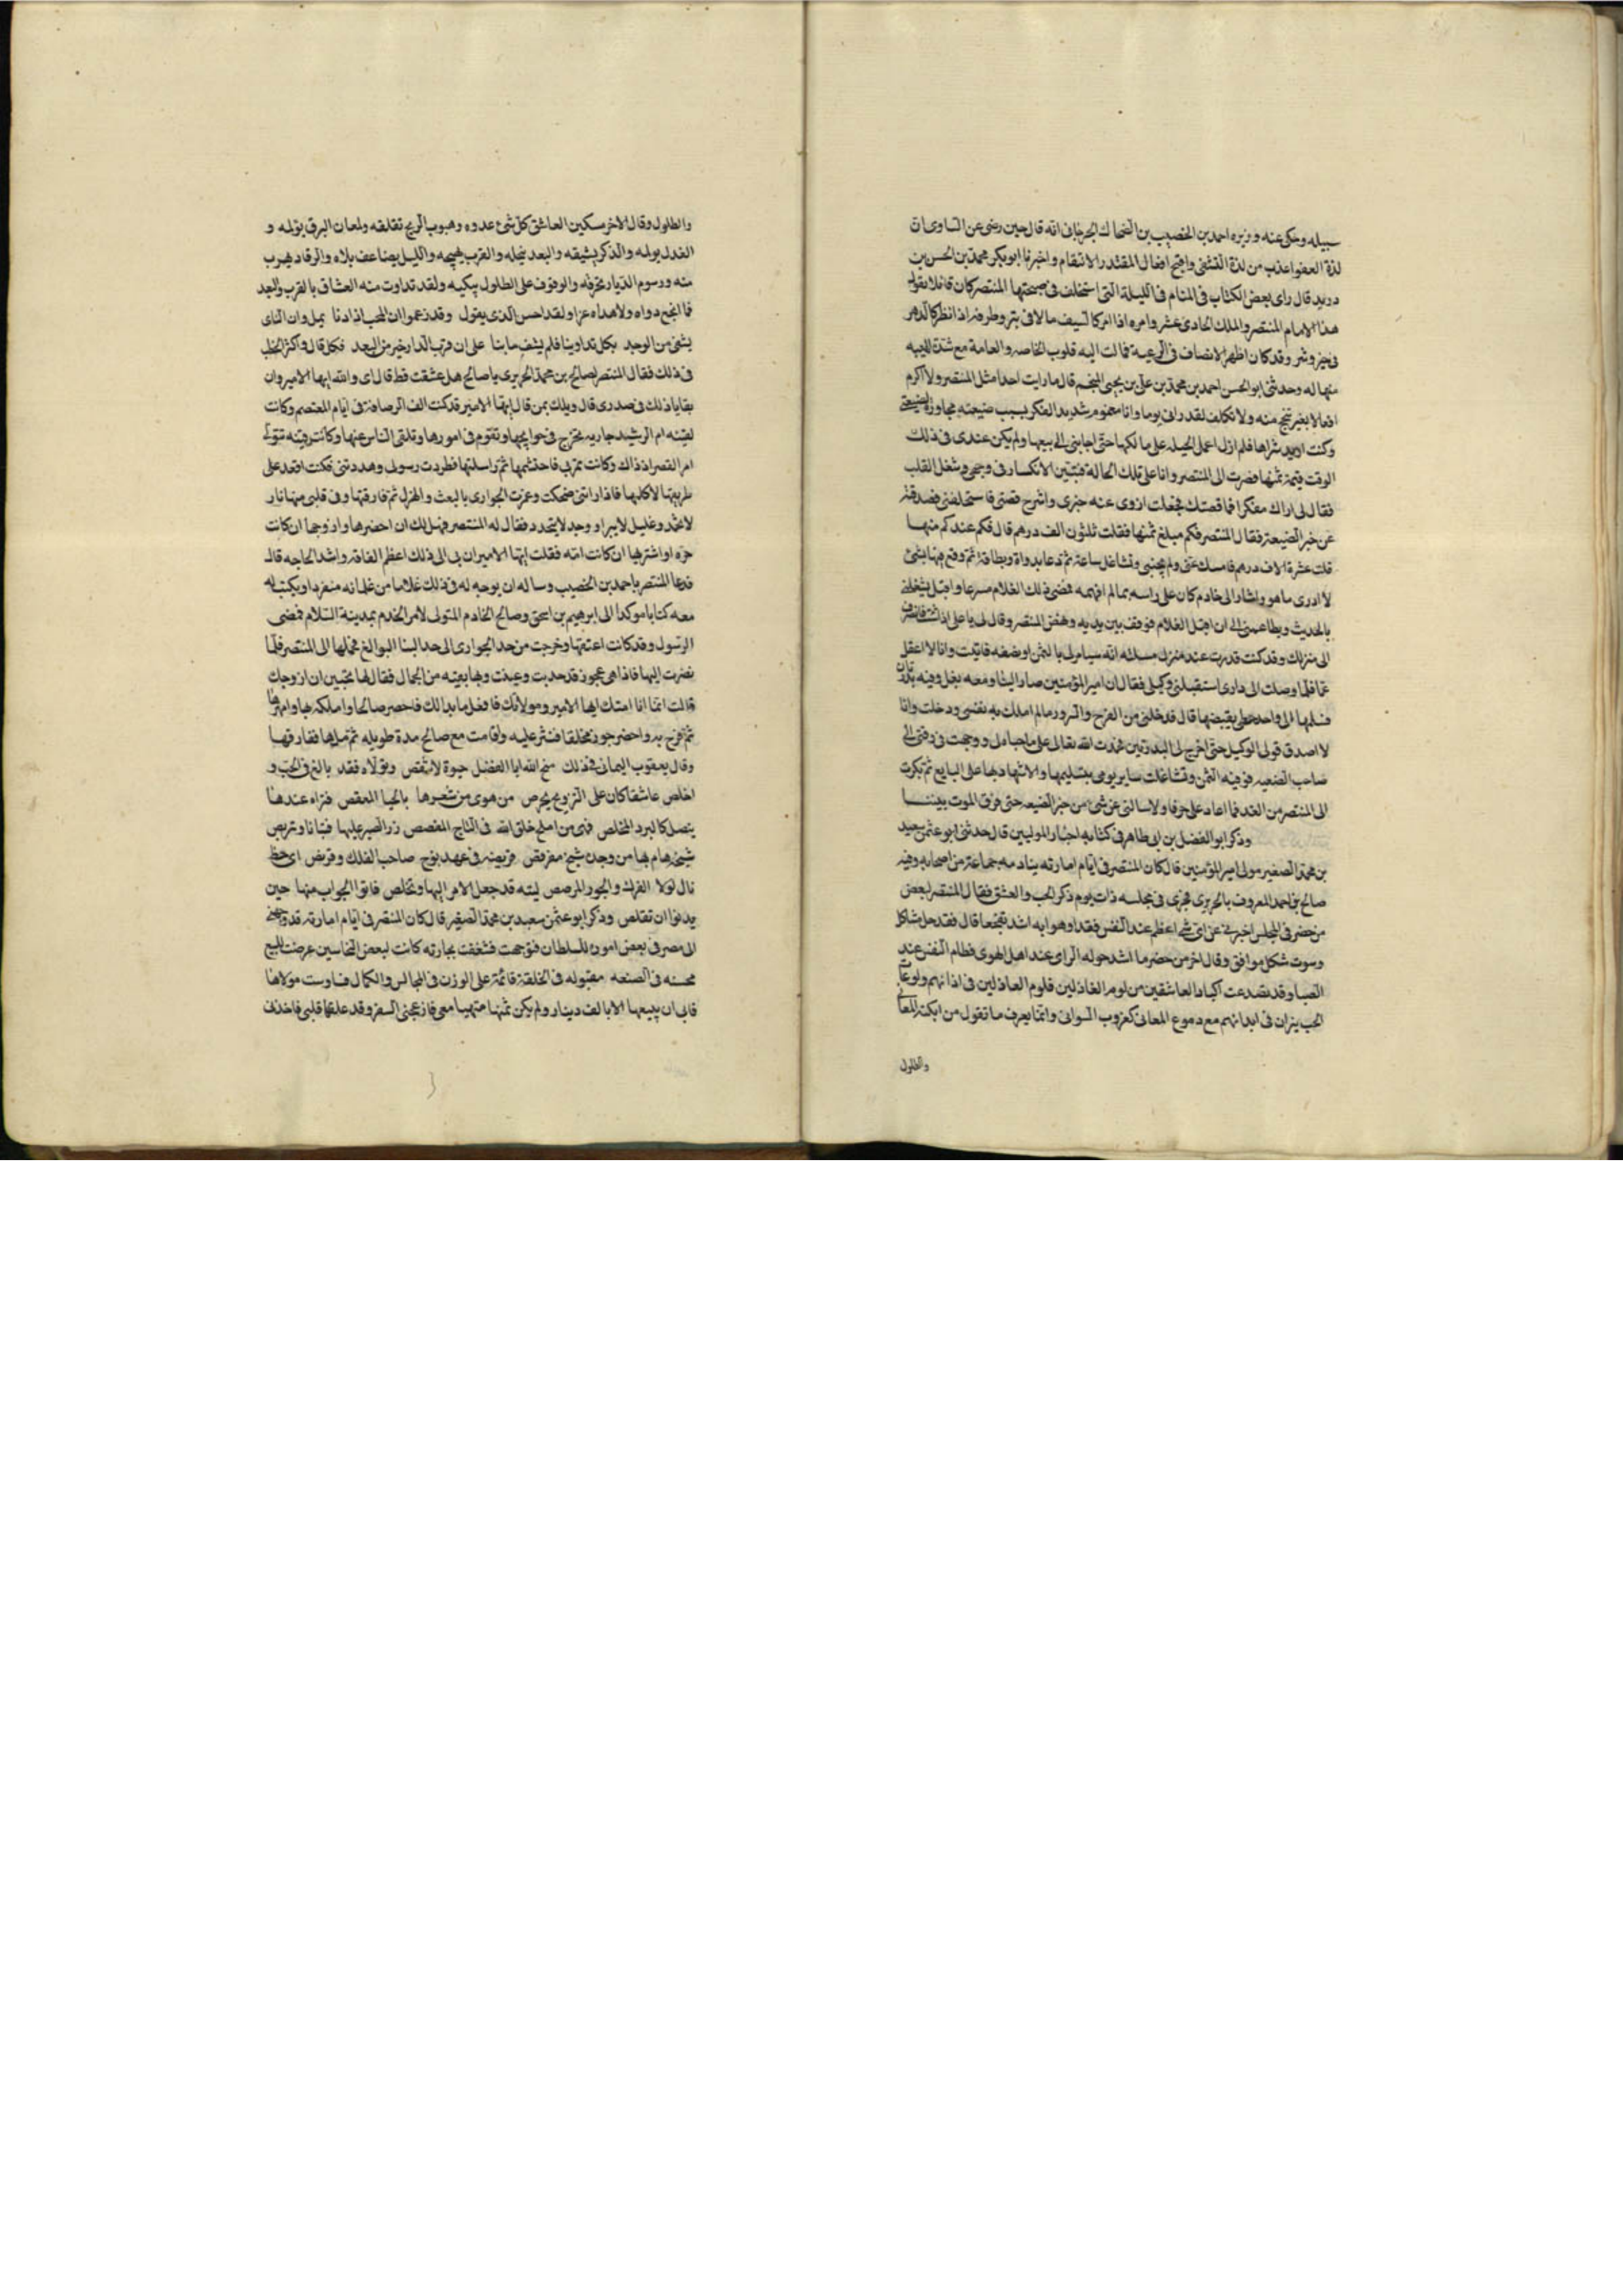 سبيله وحكى عنه وزيره احمد بن الخصيب بن الضحاك الجرجانى انه قال حين رضى عن الشاوى ان
لذة العفو اعذب من لذة التشفى واقبح افعال المقتدر الانتقام واخبرنا ابو بكر محمد بن الحسن بن
دريد قال راى بعض الكتاب فى المنام فى الليلة التى استخلف فى صبحتها المنتصر كان قائلا يقول
هذا الامام المنتصر والملك الحادى عشر وامره اذا امر كالسيف مالاقى بتر وطرفه اذا نظر كالدهر
فى خير وشر وقد كان اظهر الانصاف فى الرعية فمالت اليه قلوب الخاصه والعامة مع شدة الهيبه
منها له وحدثنى ابو الحسن احمد بن محمد بن على بن يحيى المنجم قال ما رايت احدا مثل المنتصر ولا اكرم
افعالا بغير تبجح منه ولا تكلف لقد رانى يوما وانا مغموم شديد الفكر بسبب ضيعته مجاوزة لضيعتى
وكنت اريد شراها فلم ازل اعمل الحيله على مالكها حتى اجابنى الى بيعها ولم يكن عندى فى ذلك
الوقت قيمة ثمنها فصرت الى المنتصر وانا على تلك الحالة فتبين الانكسار فى وجهى وشغل القلب
فقال لى اراك مفكرا فما قصتك فجعلت ازوى عنه خبرى واشرح قصتى فاستحلفنى فصدقته
عن خبر الضيعة فقال المنتصر فكم مبلغ ثمنها فقلت ثلثون الف درهم قال فكم عندكم منها
قلت عشرة الاف درهم فامسك عنى ولم يجبنى وتشاغل ساعة ثم دعا بدواة وبطاقة ثم وقع فيها بشئ
لا ادرى ما هو واشار الى خادم كان على راسه بما لم افهمه فمضى ذلك الغلام مسرعا واقبل يشغلنى
بالحديث ويطاعمنى الى ان اقبل الغلام فوقف بين يديه ونهض المنتصر وقال لى يا على اذا شئت فانصرف
الى منزلك وقد كنت قدرت عند منزلى مسئلته انه سيامر لى بالثمن او نصفه فاتيت وانا لا اعقل
غما فلما وصلت الى دارى استقبلنى وكيلى فقال ان امير المؤمنين صار الينا ومعه بغل وفيه بدرتان
فسلمها الى واحد خطى يقبضها قال فدخلنى من الفرح والسرور ما لم املك به نفسى ودخلت وانا
لا اصدق قول الوكيل حتى اخرج لى البدرتين فحمدت الله تعالى على ما حباه لى ووجهت فى وقتى الى
صاحب الضيعه فوفيته الثمن وتشاغلت ساير يومى بتسليمها والاشهاد بها على البايع ثم بكرت
الى المنتصر من الغد فما اعاد على حرفا ولا سالنى عن شئ من خبر الضيعه حتى فرق الموت بيننا
وذكر ابو الفضل بن ابى طاهر فى كتابه اخبار المولبين قال حدثنى ابو عثمن سعيد
بن محمد الصغير مولى امير المؤمنين قال كان المنتصر فى ايام امارته ينادمه جماعة من اصحابه وفيه
صالح بن احمد المعروف بالحريرى فجرى فى مجلسه ذات يوم ذكر الحب والعشق فقال المنتصر لبعض
من حضر فى المجلس اخبرنى عن اى شئ اعظم عند النفس فقدا وهوا به اشد تفجعا قال فقد خل مشاكل
وموت شكل موافق وقال اخر من حضر ما اشد جوله الراى عند اهل الهوى وفطام النفس عند
الصبا وقد تصدعت اكباد العاشقين من لوم العاذلين فلوم العاذلين فى اذانهم ولوعات
الحب نيران فى ابدانهم مع دموع المعانى كغروب السوانى وانما يعرف ما تقول من ابكته المعانى
والطلول
والطلول وقال الاخر مسكين العاشق كل شئ عدوه وهبوب الريح تقلقه ولمعان البرق يؤلمه و
العذل يولمه والذكر يشيقه والبعد ينحله والقرب يهيجه والليل يضاعف بلاه والرقاد يهرب
منه ورسوم الديار تحرقه والوقوف على الطلول يبكيه ولقد تداوت منه العشاق بالقرب والبعد
فما انجح دواه ولا هداه عزا ولقد احسن الذى يقول وقد زعموا ان المحب اذا دنا يمل وان الناى
يشفى من الوجد بكل تداوينا فلم يشف ما بنا على ان قرب الدار خير من البعد فكل قال واكثر الخطب
فى ذلك فقال المنتصر لصالح بن محمد الحريرى يا صالح هل عشقت قط قال اى والله ايها الامير وان
بقايا ذلك فى صدرى قال ويلك بمن قال ايها الامير قد كنت الف الرصافة فى ايام المعتصم وكانت
لقينه ام الرشيد جاريه تخرج فى حوايجها وتقوم فى امورها وتلقى الناس عنها وكانت قينه تتولى
امر القصر اذ ذاك وكانت تمر بى فاحتشمها ثم راسلتها فطردت رسولى وهددتنى فكنت اقعد على
طريقها لاكلمها فاذا راتنى ضحكت وغمزت الجوارى بالبعث والهزل ثم فارقتها وفى قلبى منها نار
لا تخمد وغليل لا يبرا ووجد لا يتجدد فقال له المنتصر فهل لك ان احضرها وازوجها ان كانت
حره او اشتريها ان كانت امه فقلت ايها الامير ان بى الى ذلك اعظم الفاقه واشد الحاجه قال
فدعا المنتصر باحمد بن الخصيب وساله ان يوجه له فى ذلك غلاما من غلمانه منفردا ويكتب له
معه كتابا موكدا الى ابرهيم بن اسحق وصالح الخادم المتولى لامر الخدم بمدينة السلام فمضى
الرسول وقد كانت اعتقتها وخرجت من حد الجوارى الى حد النسا البوالغ فحملها الى المنتصر فلما
نضرت اليها فاذا هى عجوز قد حدبت وعنست وبها بقيه من الجمال فقال لها تحبين ان ازوجك
قالت انما انا امتك ايها الامير ومولاتك فافعل ما بدالك فاحضر صالحا واملكه بها وامهرها
ثم مزح به واحضر جوز مخلقا فنثر عليه واقامت مع صالح مدة طويله ثم ملها ففارقها
وقال يعقوب اليمانى فى ذلك منح الله ابا الفضل حيوة لا تنغص وتولاه فقد بالغ فى الحب و
اخلص عاشقا كان على التزويج يحرص من هوى من شعرها بالحنا المعقص فتراه عندها
ينصل كالبرد المخلص فهى من املح خلق الله فى التاج المفصص زر القصر عليها فتبانا وتربص
شيخه هام بها من وجدن شيخ مفرقص قربصه فى عهد نوح صاحب الفلك وقربص اى حظ
نال لولا الفرك والجوز المرصص ليته قد جعل الامر اليها وتخلص فاتوا الجواب منها حين
يدنوا ان تقلص وذكر ابو عثمن سعيد بن محمد الصغير قال كان المنتصر فى ايام امارته قد وجهنى
الى مصر فى بعض امور للسلطان فتوجهت فشغفت بجارية كانت لبعض النخاسين عرضت للبيع
محسنه فى الصنعه مقبوله فى الخلقة قائمة على الوزن فى المجالس والكمال فساومت مولاها
فابى ان يبيعها الا بالف دينار ولم يكن ثمنها متهيا معى فازعجنى السفر وقد علقها قلبى فاخذنى